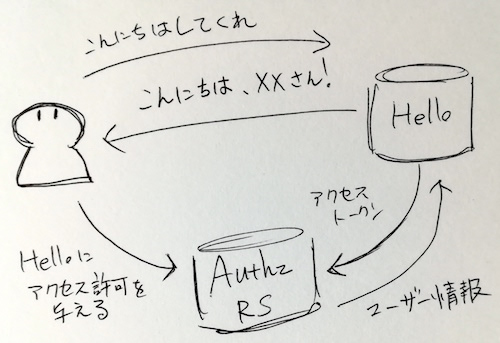 こんにちはしてくれ
こんにちは、XXさん!
Hello
アクセス
トークン
Helloに
アクセス許可を
与える
Authz
RS
ユーザー情報